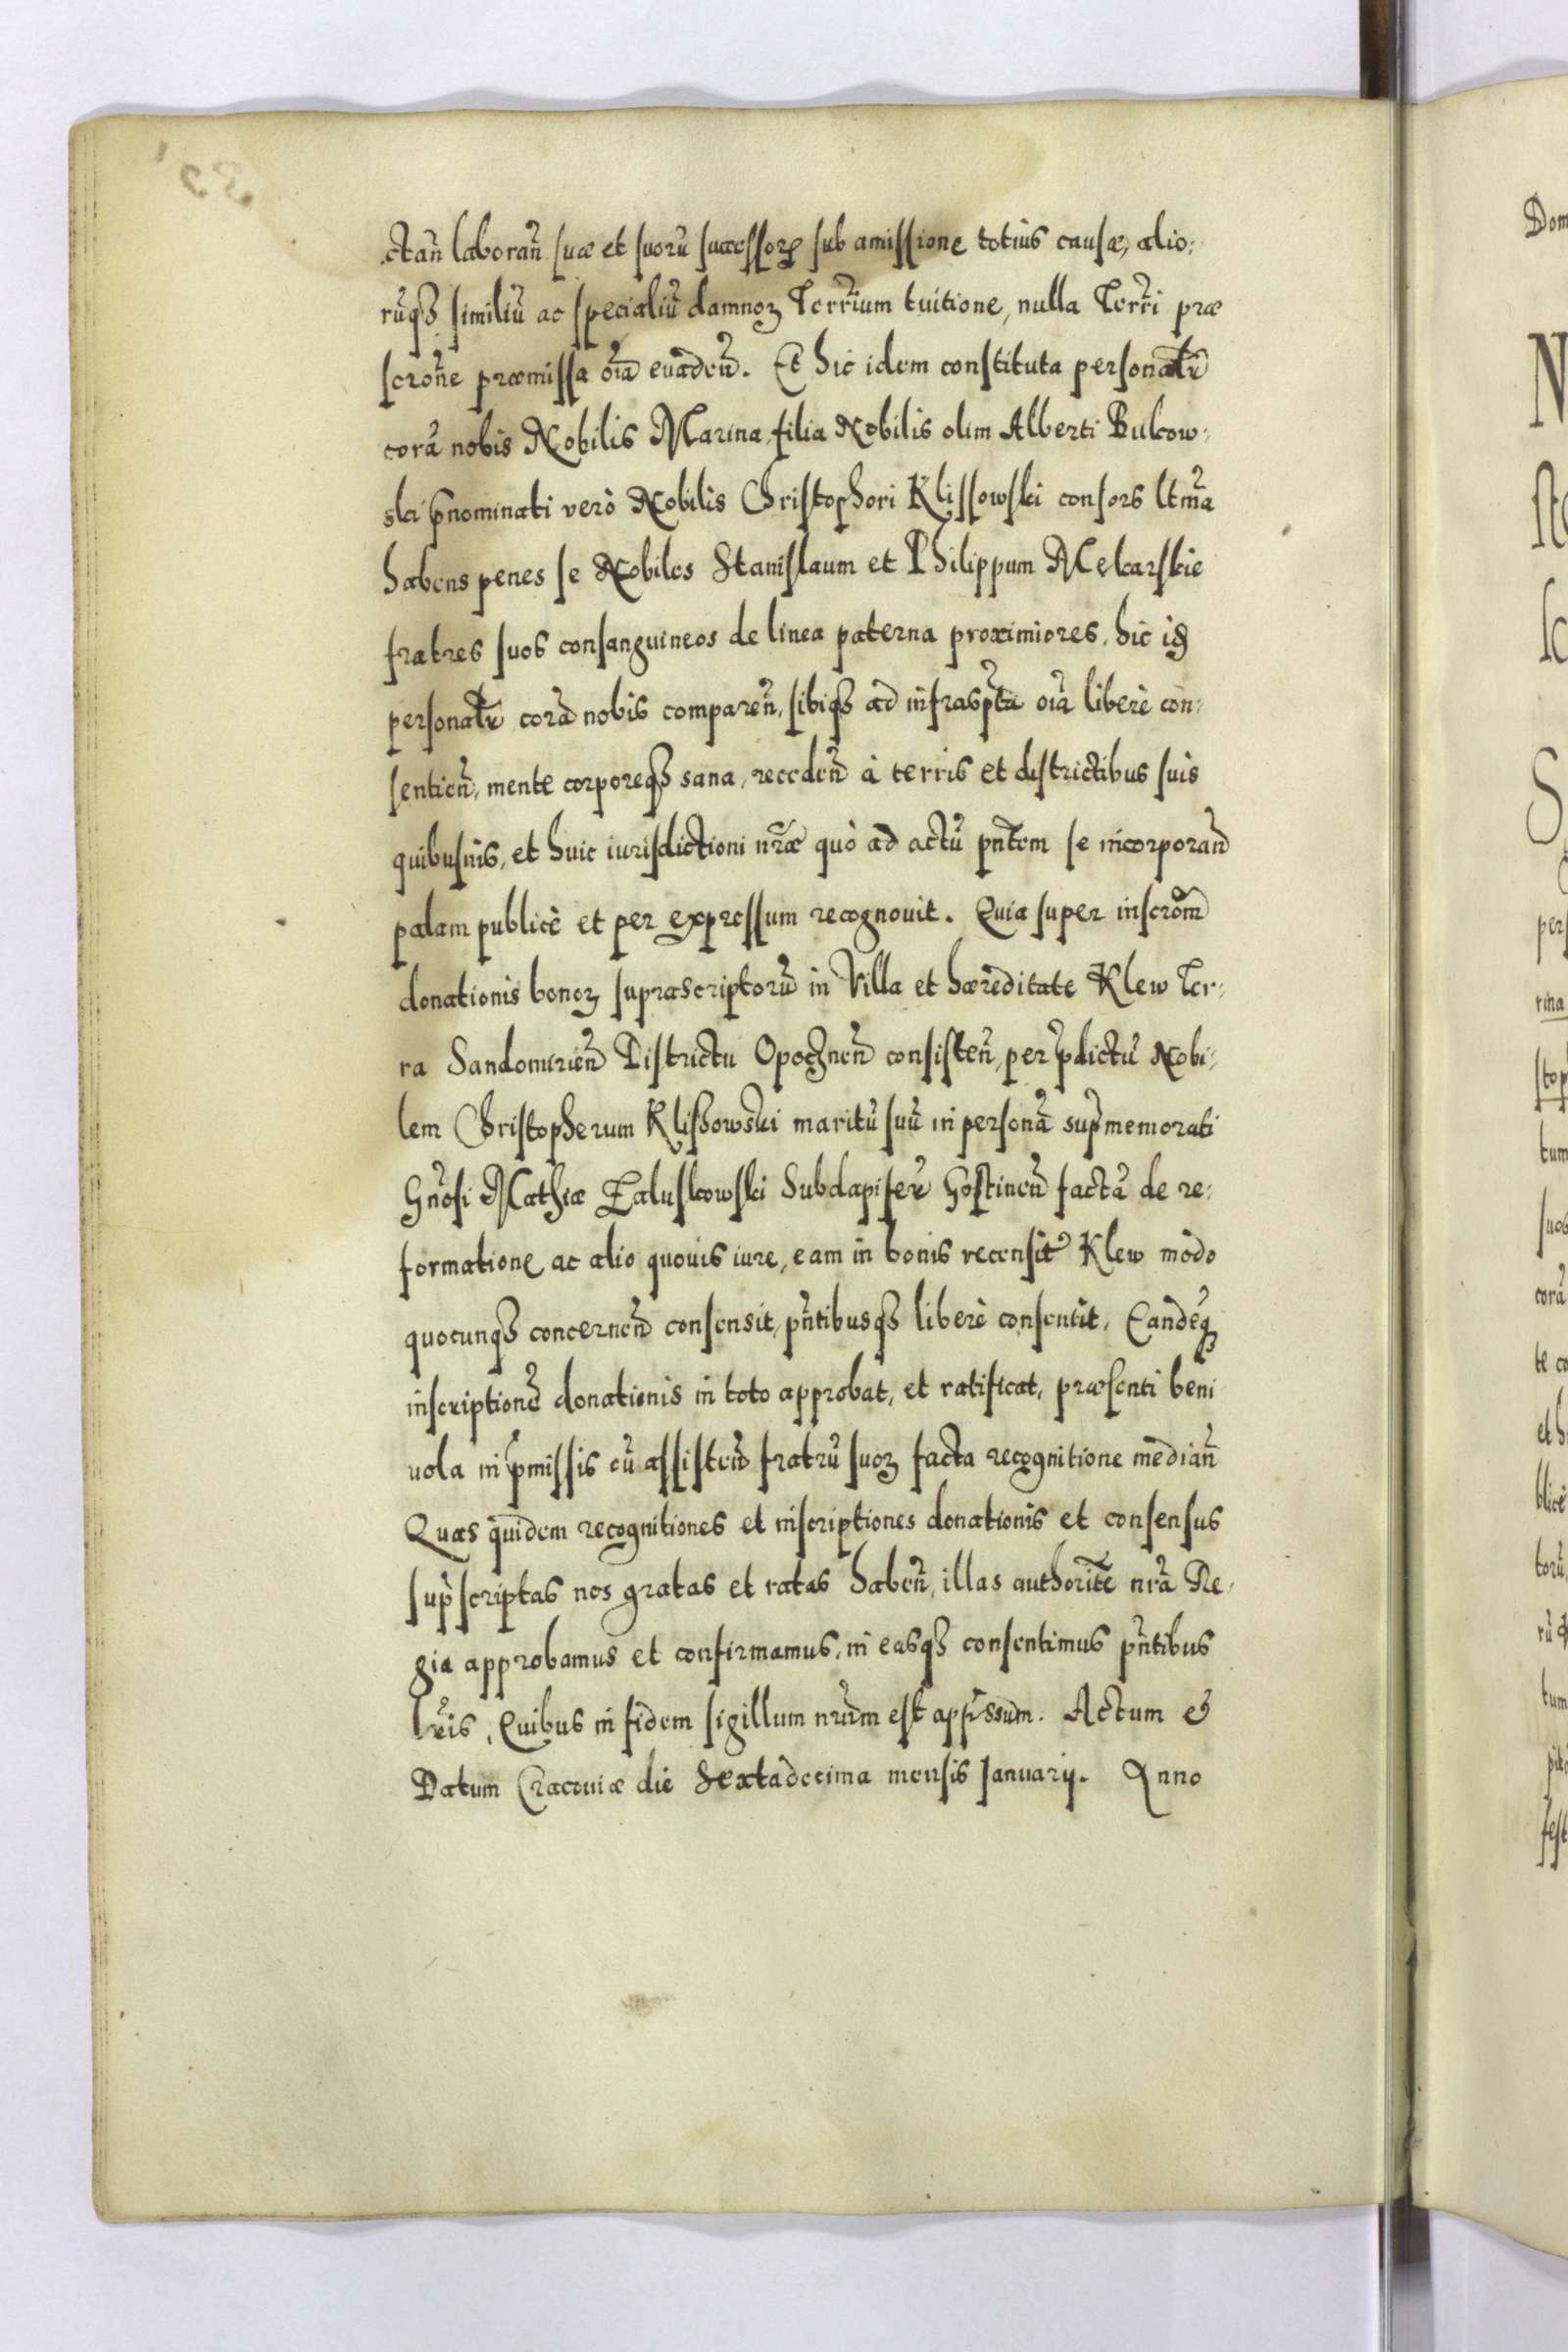 ctañ laborañ suæ et suorũ successorꝝ sub amissione totius causæ, alio:
rũqȝ similiũ ac specialiũ damnoꝝ Terr̃ium tuitione, nulla Terr̃i præ
scrõne præmissa oĩa euadeñ. Et hic idem constituta personalr̃
corã nobis Nobilis Marina filia Nobilis olim Alberti Bulcow:
ski p̃nominati verò Nobilis Christophori Klissowski consors ltm̃a
habens penes se Nobiles Stanislaum et Philippum Mekarskie
fratres suos consanguineos de linea paterna proximiores, hic iɋ
personalr̃ corã nobis compareñ, sibiqȝ ad infrasp̃ta oĩa liberè con:
sentieñ, mente corporeqȝ sana, recedeñ à terris et districtibus suis
quibusuis, et huic iurisdictioni nr̃æ quò ad actũ pñtem se incorporañ
palam publicè et per expressum recognouit. Quia super inscrõm
donationis bonoꝝ suprascriptorũ in Villa et hæreditate Klew Ter:
ra Sandomirieñ Districtu Opoczneñ consisteñ, per p̃dictũ Nobi:
lem Christopherum Klishowski maritũ suũ in personã sup̃memorati
Gñosi Mathiæ Zaluskowski Subdapiferi Gostineñ factã de re:
formatione ac alio quouis iure, eam in bonis recensit̃ Klew modo
quocunqȝ concerneñ consensit, pñtibusqȝ liberè consentit, Eandẽqȝ
inscriptionẽ donationis in toto approbat, et ratificat, præsenti beni
uola in p̃missis cũ assisteñ fratrũ suoꝝ facta recognitione mediañ
Quas quidem recognitiones et inscriptiones donationis et consensus
sup̃scriptas nos gratas et ratas habeñ, illas authoritẽ nr̃a Re:
gia approbamus et confirmamus, in easqȝ consentimus pñtibus
lr̃is, Quibus in fidem sigillum nr̃um est app̃ssum. Actum &
Datum Cracouiæ die Sextadecima mensis Ianuarij. Anno